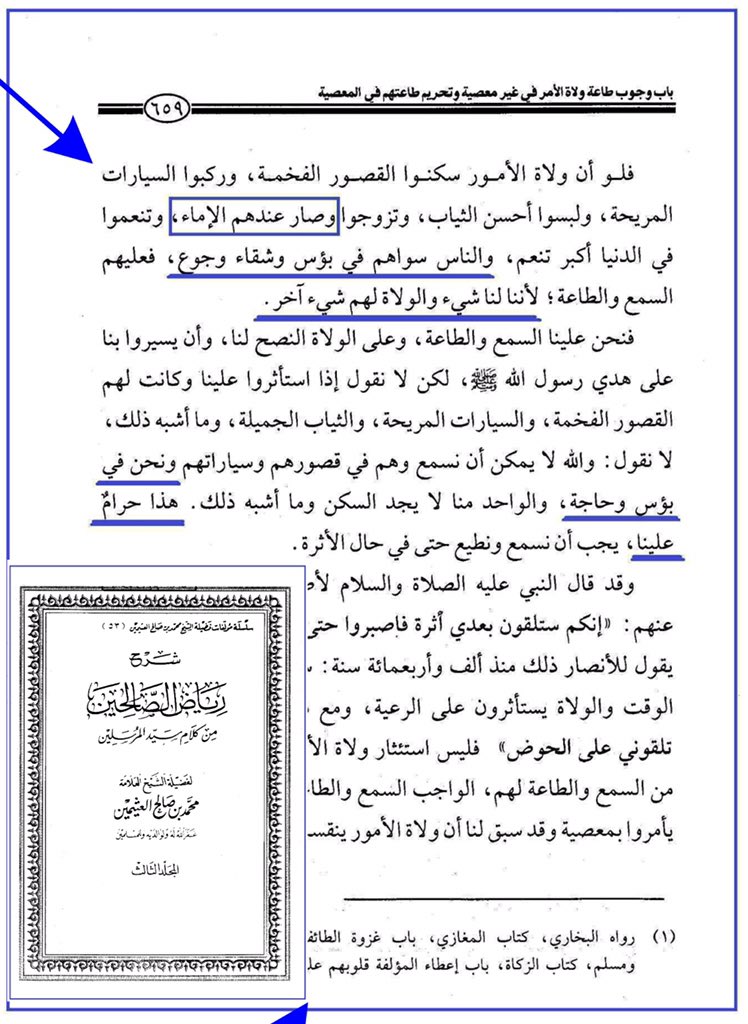 باب وجوب طاعة ولاة الأمر في غير معصية وتحريم طاعتهم في المعصية
٦٥٩
فلـو أن ولاة الأمـور سكنـوا القصـور الفخمـة، وركبـوا السيارات
المريحة، ولبسوا أحسن الثياب، وتزوجوا وصار عندهم الإماء، وتنعموا
في الدنيا أكبر تنعم، والناس سواهم في بؤس وشقاء وجوع، فعليهم
السمع والطاعة؛ لأننا لنا شيء والولاة لهم شيء آخر.
فنحن علينا السمع والطاعة، وعلى الولاة النصح لنا، وأن يسيروا بنا
على هدي رسول الله ﷺ، لكن لا نقول إذا استأثروا علينا وكانت لهم
القصور الفخمة، والسيارات المريحة، والثياب الجميلة، وما أشبه ذلك،
لا نقول: والله لا يمكن أن نسمع وهم في قصورهم وسياراتهم ونحن في
بؤس وحاجة، والواحد منا لا يجد السكن وما أشبه ذلك. هذا حرامٌ
علينا، يجب أن نسمع ونطيع حتى في حال الأثرة.
وقد قال النبي عليه الصلاة والسلام
عنهم: «إنكم ستلقون بعدي أثرة فاصبروا حتى
يقول للأنصار ذلك منذ ألف وأربعمائة سنة:
الوقت والولاة يستأثرون على الرعية، ومع
تلقوني على الحوض» فليس استئثار ولاة
من السمع والطاعة لهم، الواجب السمع
يأمروا بمعصية وقد سبق لنا أن ولاة الأمور
(١) رواه البخاري، كتاب المغازي، باب غزوة
ومسلم، كتاب الزكاة، باب إعطاء المؤلفة قلوبهم
سلسلة مؤلفات فضيلة الشيخ محمد بن صالح العثيمين (٥٣)
شرح
رياض الصالحين
من كلام سيد المرسلين
لفضيلة الشيخ العلامة
محمد بن صالح العثيمين
غفر الله له ولوالديه وللمسلمين
المجلد الثالث